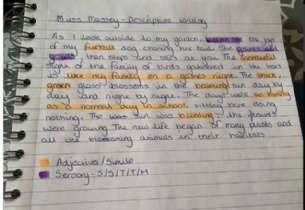 Miss Massey - Descriptive writing
As I look outside to my garden, I can see the joy
of my furless dog chasing her tail. She
then stops and sits at you. The
of the family of birds gathered in the nest
is like my family on a games night. The thick,
green grass blossoms in the beaming sun day by
day and night by night. The days were as
as a normal day in school, sitting here doing
nothing. The sun was blinding - the flowers
were growing. The new life began of many plants and
all the blooming animals in their habitats
Adjectives/Simile
Sensory - S/S/T/T/H